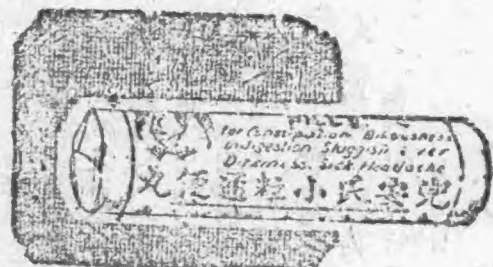 for Constipation Biliousness
Indigestion Sluggish
Dizziness, Sick Headache
兜安氏小粒通便丸